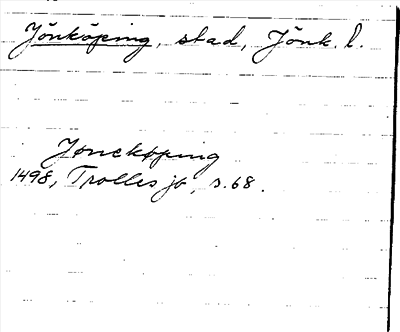 Jönköping, stad, Jönk. l.
Jonekøping
1498, Trolles jb, s. 68.